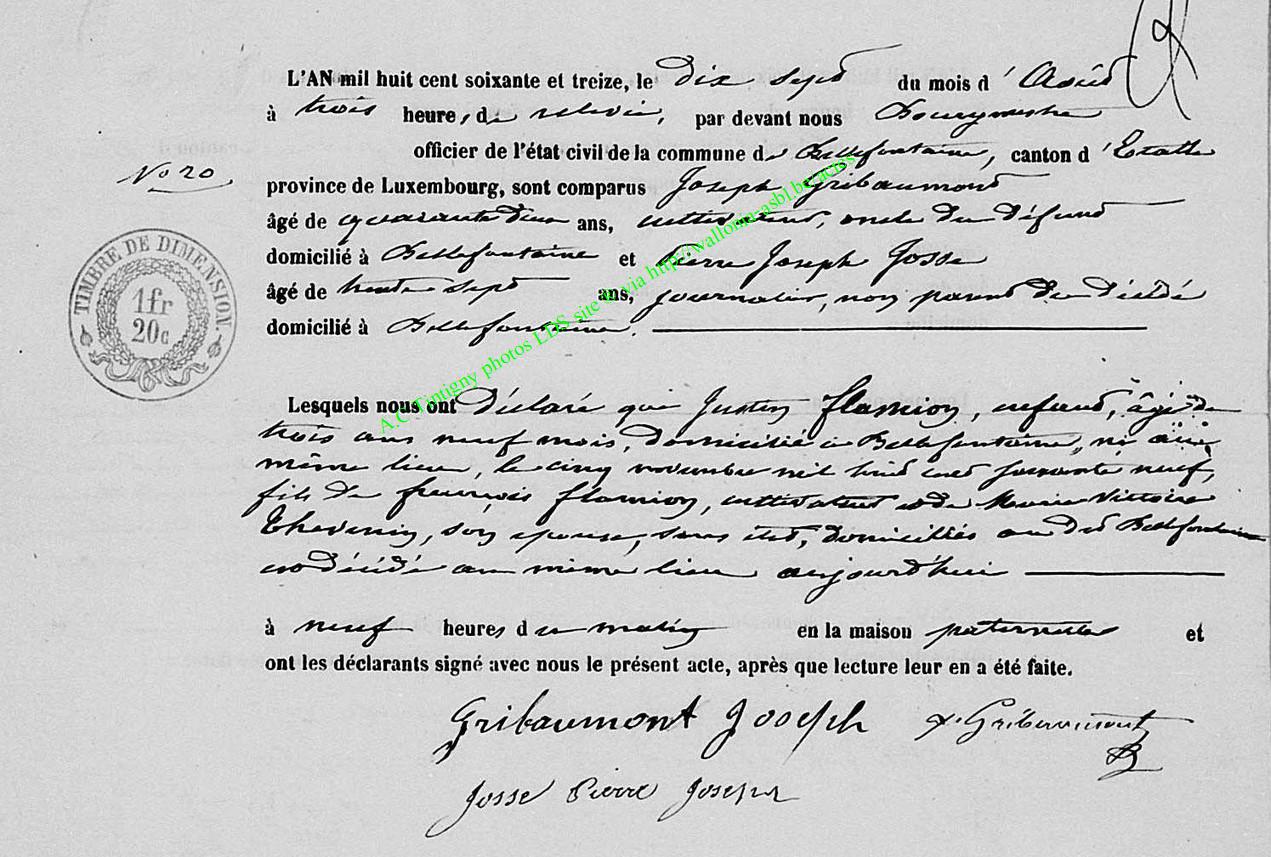 L'AN mil huit cent soixante et treize, le dix sept du mois d'Août
à trois heures de relevée, par devant nous Bourgmestre
officier de l'état civil de la commune de Bellefontaine, canton d'Etalle
No 20.
province de Luxembourg, sont comparus Joseph Gribaumont
âgé de quarante deux ans, cultivateur, oncle du défunt
domicilié à Bellefontaine et Pierre Joseph Josse
âgé de trente sept ans, journalier, non parent du décédé
domicilié à Bellefontaine.
TIMBRE DE DIMENSION.
1 fr
20 c
A.C. Tintigny photos LDS site o via http://wallonia-asbl.be/actes
Lesquels nous ont déclaré que Justin flamion, enfant, âgé de
trois ans neuf mois, domicilié à Bellefontaine, né au
même lieu, le cinq novembre mil huit cent soixante neuf,
fils de françois flamion, cultivateur et de Marie Victoire
Thévenin, son épouse, sans état, domiciliés au dit Bellefontaine
est décédé au même lieu aujourd'hui
à neuf heures du matin en la maison paternelle et
ont les déclarants signé avec nous le présent acte, après que lecture leur en a été faite.
Gribaumont Joseph Gribaumont
Josse Pierre Joseph